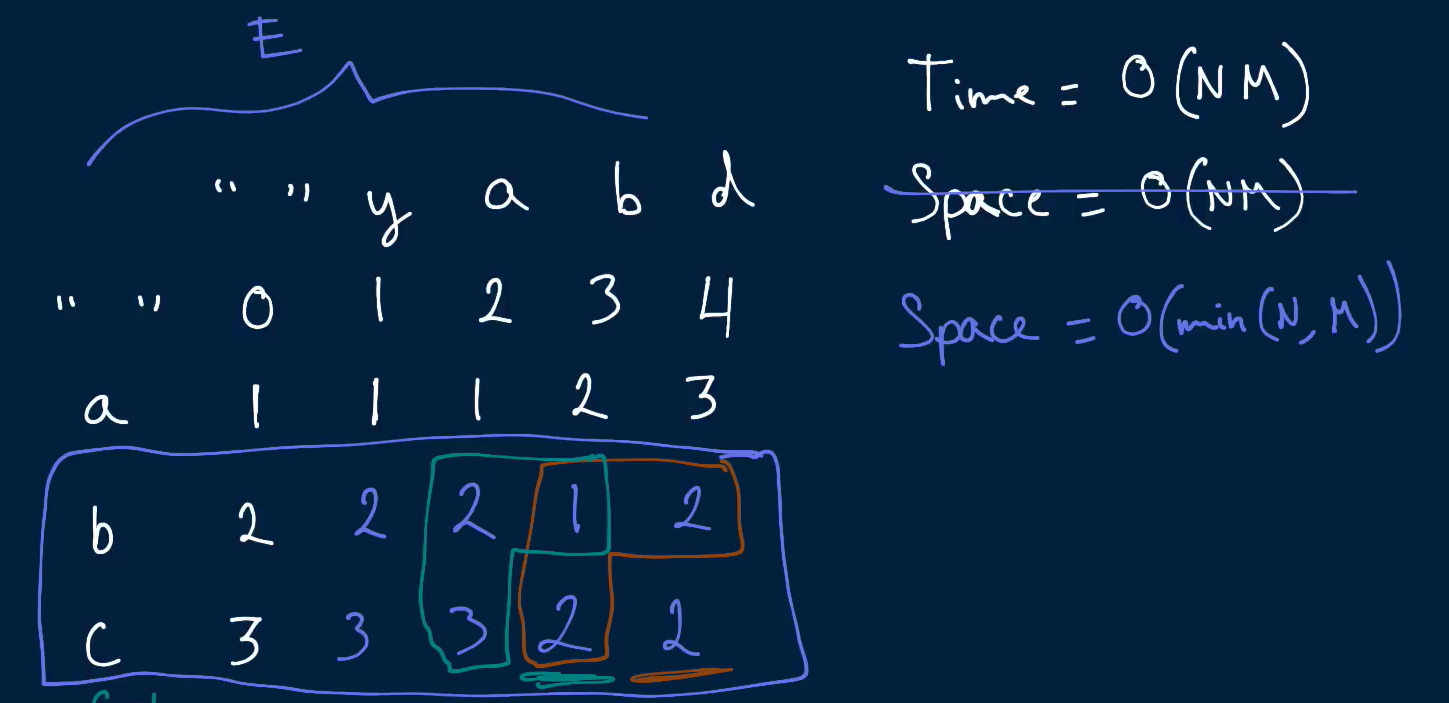 E
" " y a b d
" " 0 1 2 3 4
a 1 1 1 2 3
b 2 2 2 1 2
c 3 3 3 2 2
Time = O(NM)
Space = O(NM)
Space = O(min(N, M))